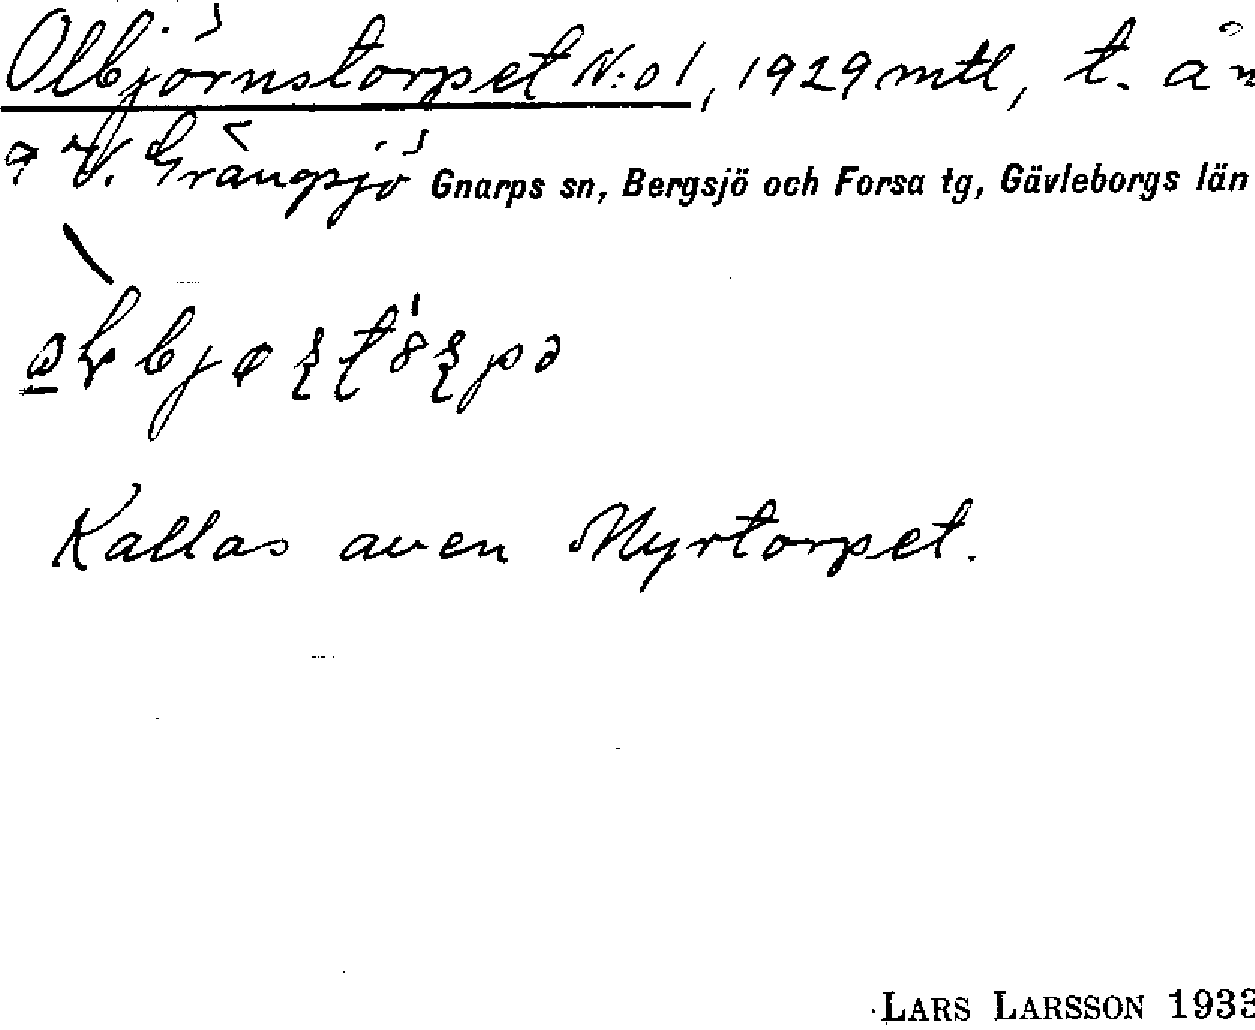 Olbjörnstorpet N:o 1, 1929 mtl, t. ån
V. Grängsjö Gnarps sn, Bergsjö och Forsa tg, Gävleborgs län
Kallas även Myrtorpet.
LARS LARSSON 1933